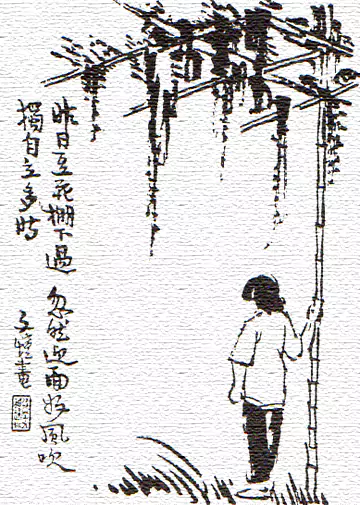 昨日豆花棚下過 忽然迎面好風吹
獨自立多時
子愷畫